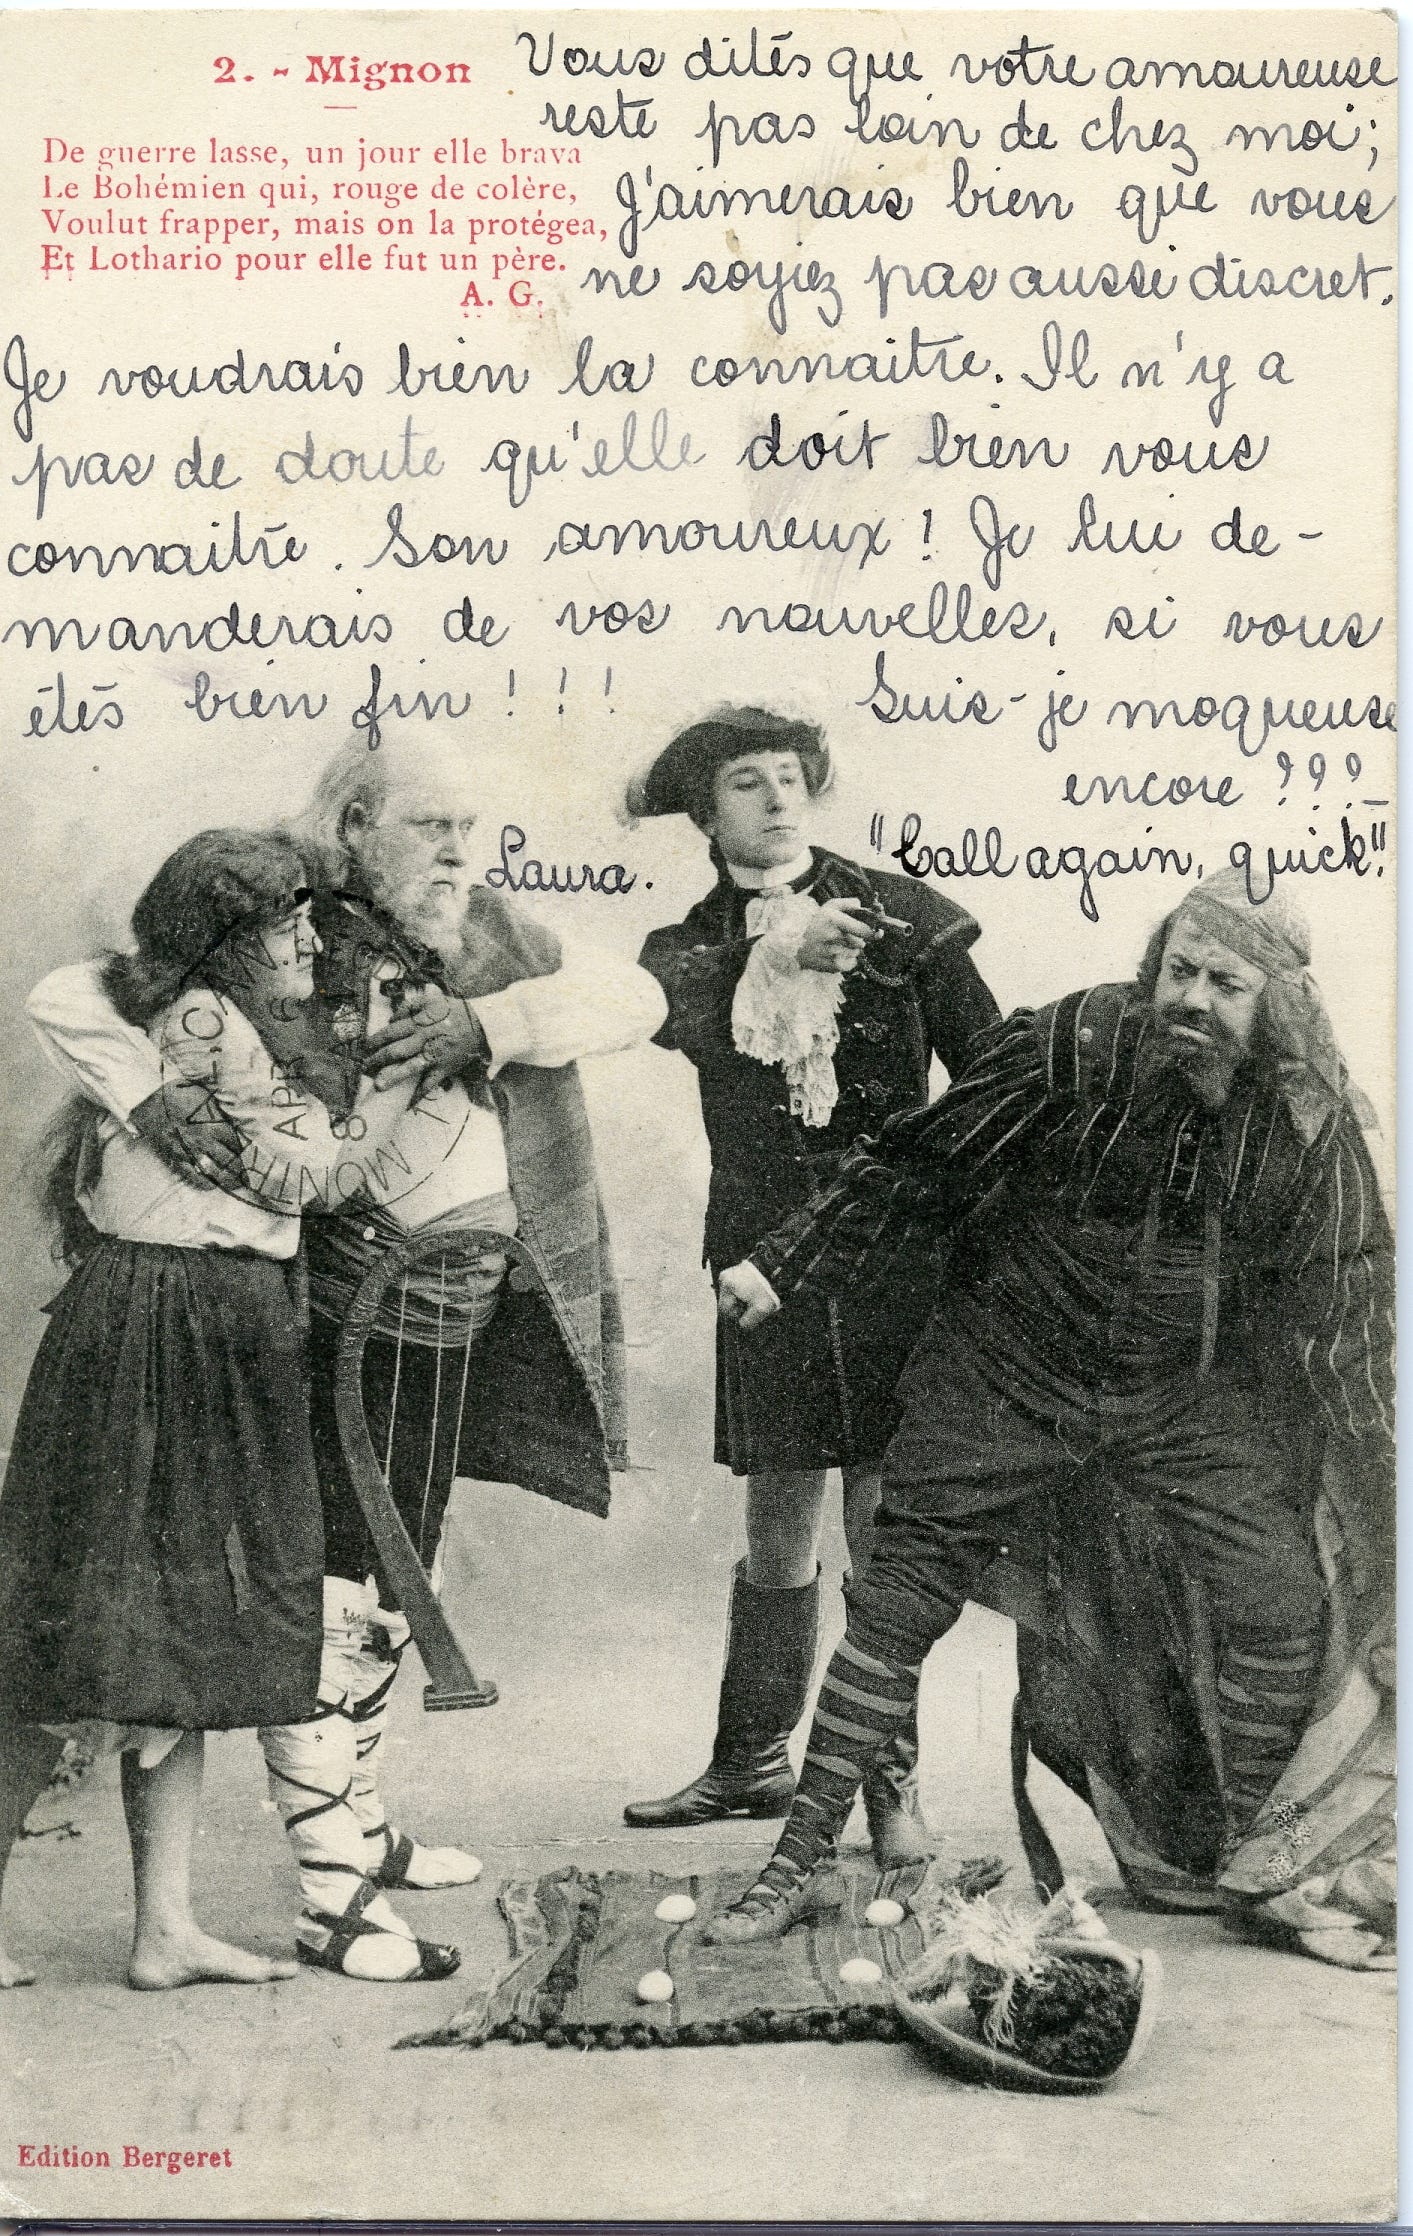 2. - Mignon
De guerre lasse, un jour elle brava
Le Bohémien qui, rouge de colère,
Voulut frapper, mais on la protégea,
Et Lothario pour elle fut un père.
A. G.
Vous dités que votre amoureuse
reste pas loin de chez moi;
J'aimerais bien que vous
ne soyiez pas aussi discret.
Je voudrais bien la connaitre. Il n'y a
pas de doute qu'elle doit bien vous
connaitre. Son amoureux! Je lui de-
manderais de vos nouvelles, si vous
étés bien fin!!!
Suis-je moqueuse
encore ???
"Call again, quick".
Laura.
MONTREAL, CAN.
APR 6
8
Edition Bergeret